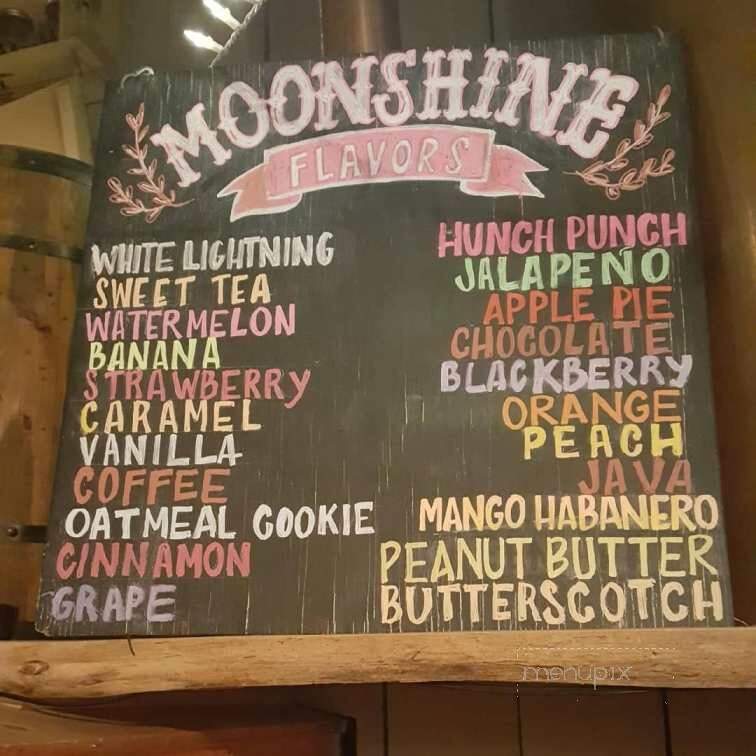 MOONSHINE
FLAVORS
WHITE LIGHTNING
SWEET TEA
WATERMELON
BANANA
STRAWBERRY
CARAMEL
VANILLA
COFFEE
OATMEAL COOKIE
CINNAMON
GRAPE
HUNCH PUNCH
JALAPEÑO
APPLE PIE
CHOCOLATE
BLACKBERRY
ORANGE
PEACH
JAVA
MANGO HABANERO
PEANUT BUTTER
BUTTERSCOTCH
menupix